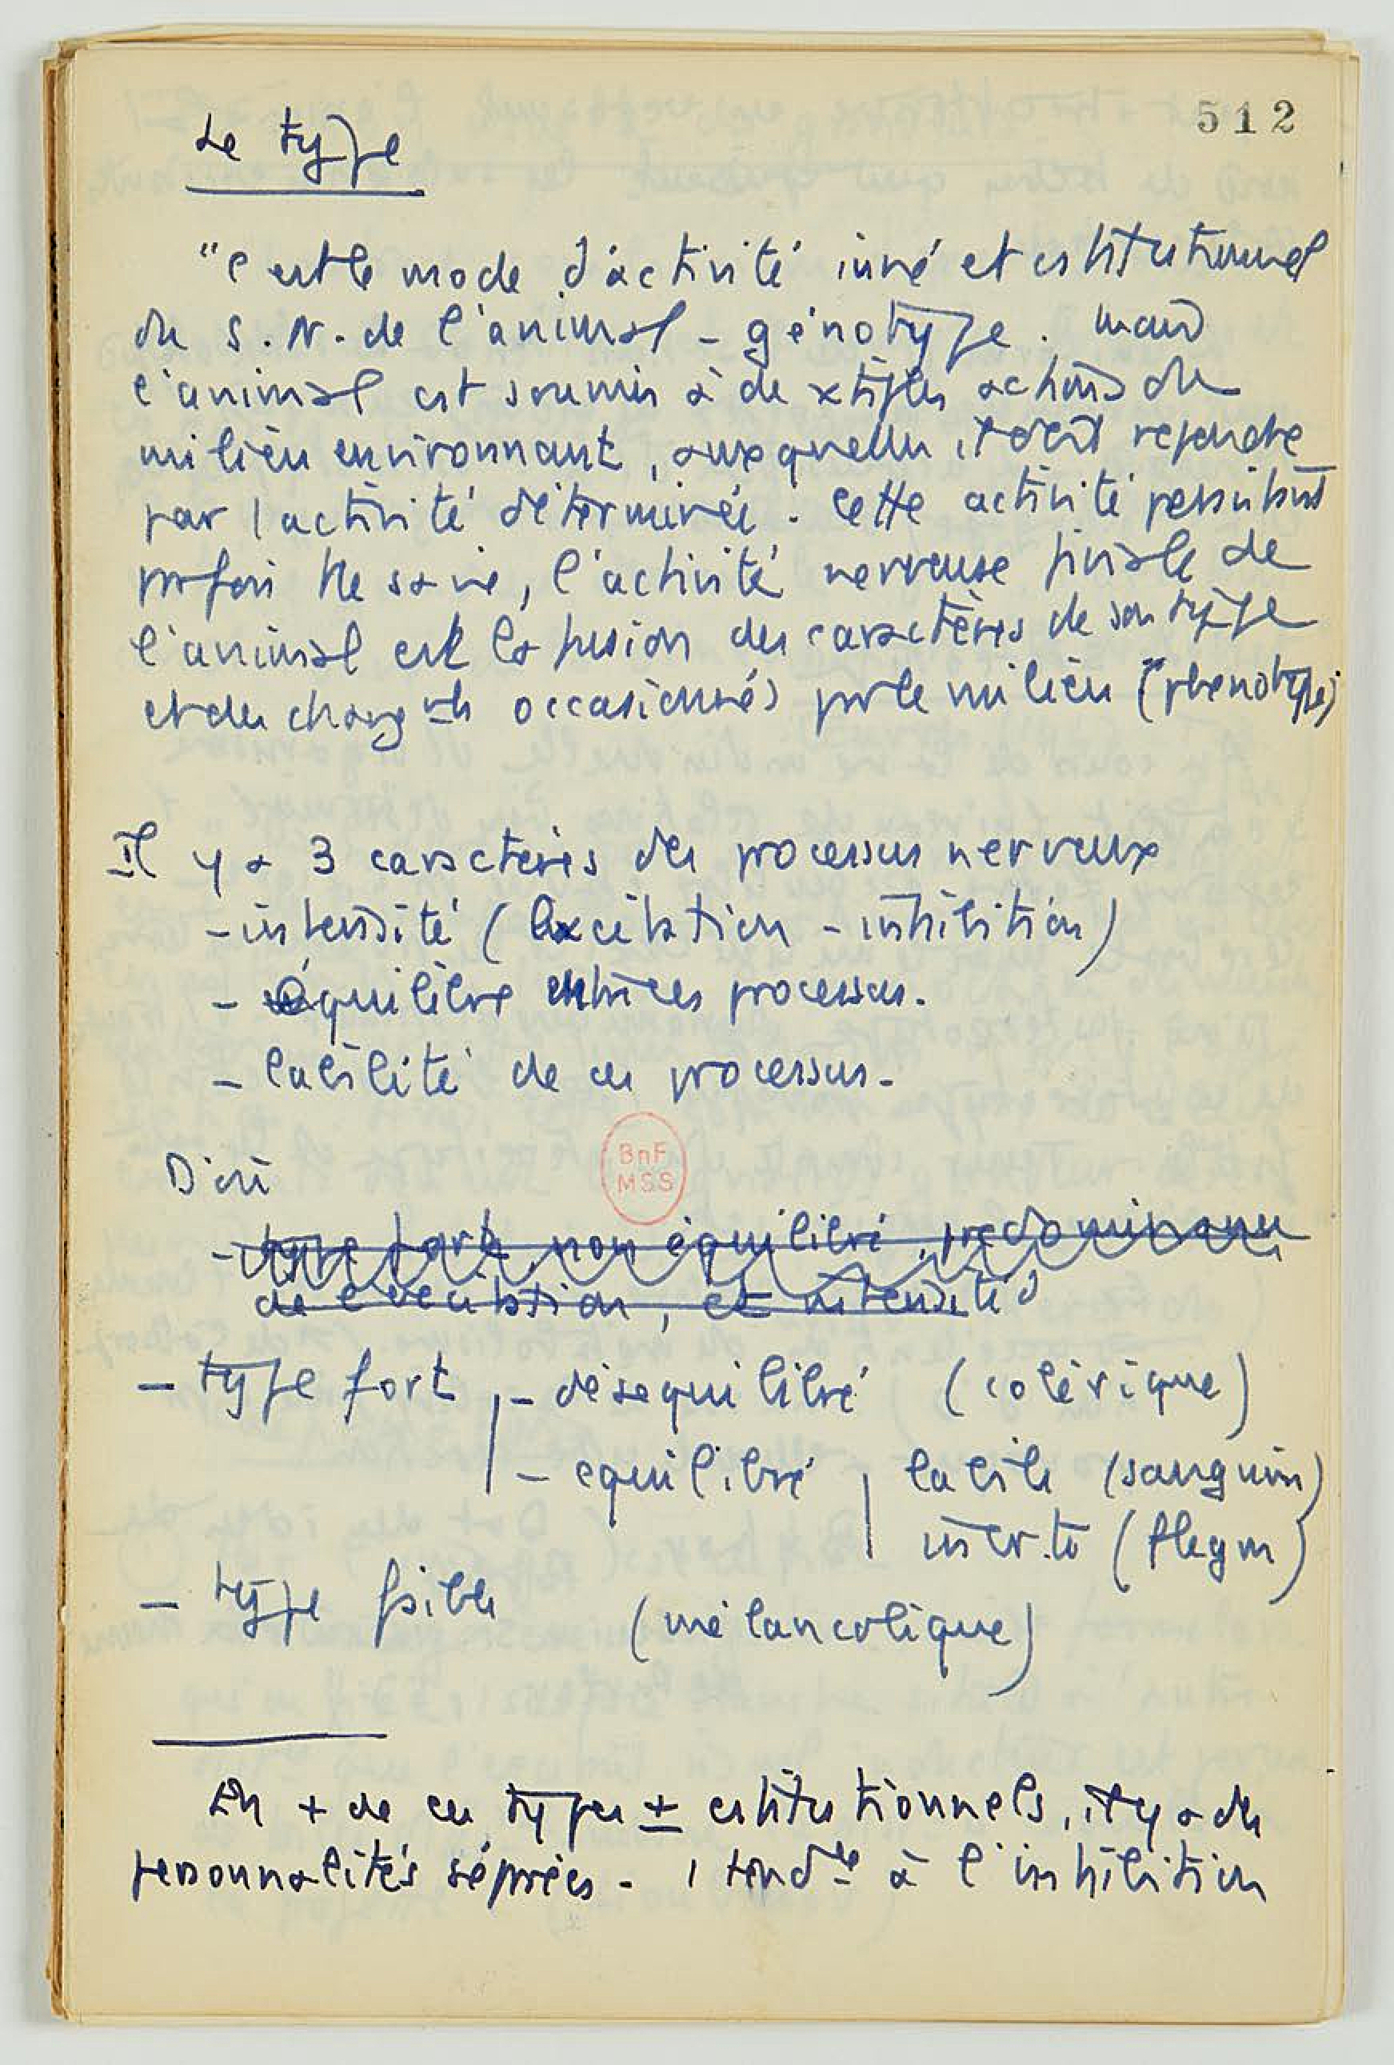 512
Le type
"C'est le mode d'activité inné et cstitutionnel
du S.N. de l'animal - génotype. Mais
l'animal est soumis à de xtiples actions du
milieu environnant, auxquelles il doit repondre
par l'activité déterminée. Cette activité persistant
parfois tte sa vie, l'activité nerveuse finale de
l'animal est la fusion des caractères de son type
et des changts occasionnés par le milieu (phenotype)
Il y a 3 caracteres des processus nerveux
- intensité (Excitation - inhibition)
- équilibre entre ces processus.
- labilité de ces processus.
D'où
BnF
MSS
- type fort, non équilibré, predominance
de l'excitation, et intensité
- type fort - désequilibré (colérique)
- equilibré labile (sanguin)
inerte (flegm)
- type faible (mélancolique)
En + de ces types ± cstitutionnels, il y a des
personnalités séparées. 1 tendce à l'inhibition